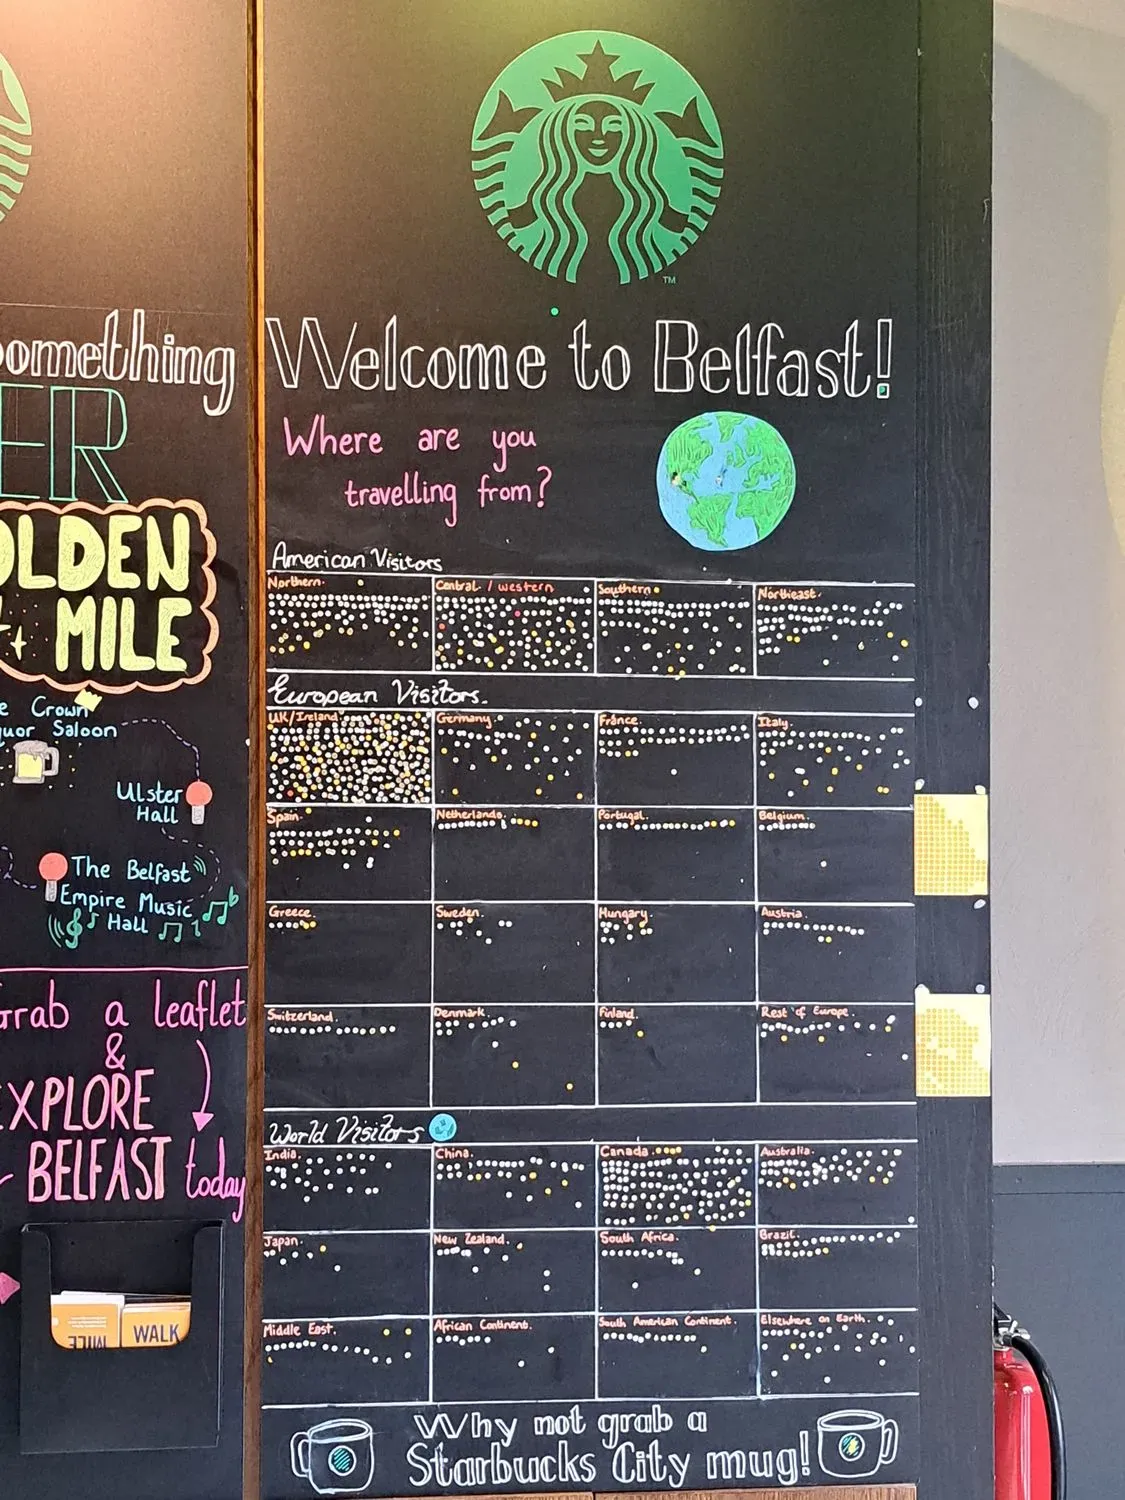 something
OLDEN
MILE
Crown
Saloon
Ulster
Hall
The Belfast
Empire Music
Hall
Grab a leaflet
&
EXPLORE
BELFAST today
MILE
WALK
TM
Welcome to Belfast!
Where are you
travelling from?
American Visitors
Northern. Central / western Southern. Northeast.
European Visitors.
UK/Ireland Germany France. Italy.
Spain. Netherlands. Portugal. Belgium.
Greece. Sweden. Hungary. Austria.
Switzerland. Denmark. Finland. Rest of Europe.
World Visitors
India. China. Canada. Australia.
Japan. New Zealand. South Africa. Brazil.
Middle East. African Continent. South American Continent. Elsewhere on Earth.
Why not grab a
Starbucks City mug!